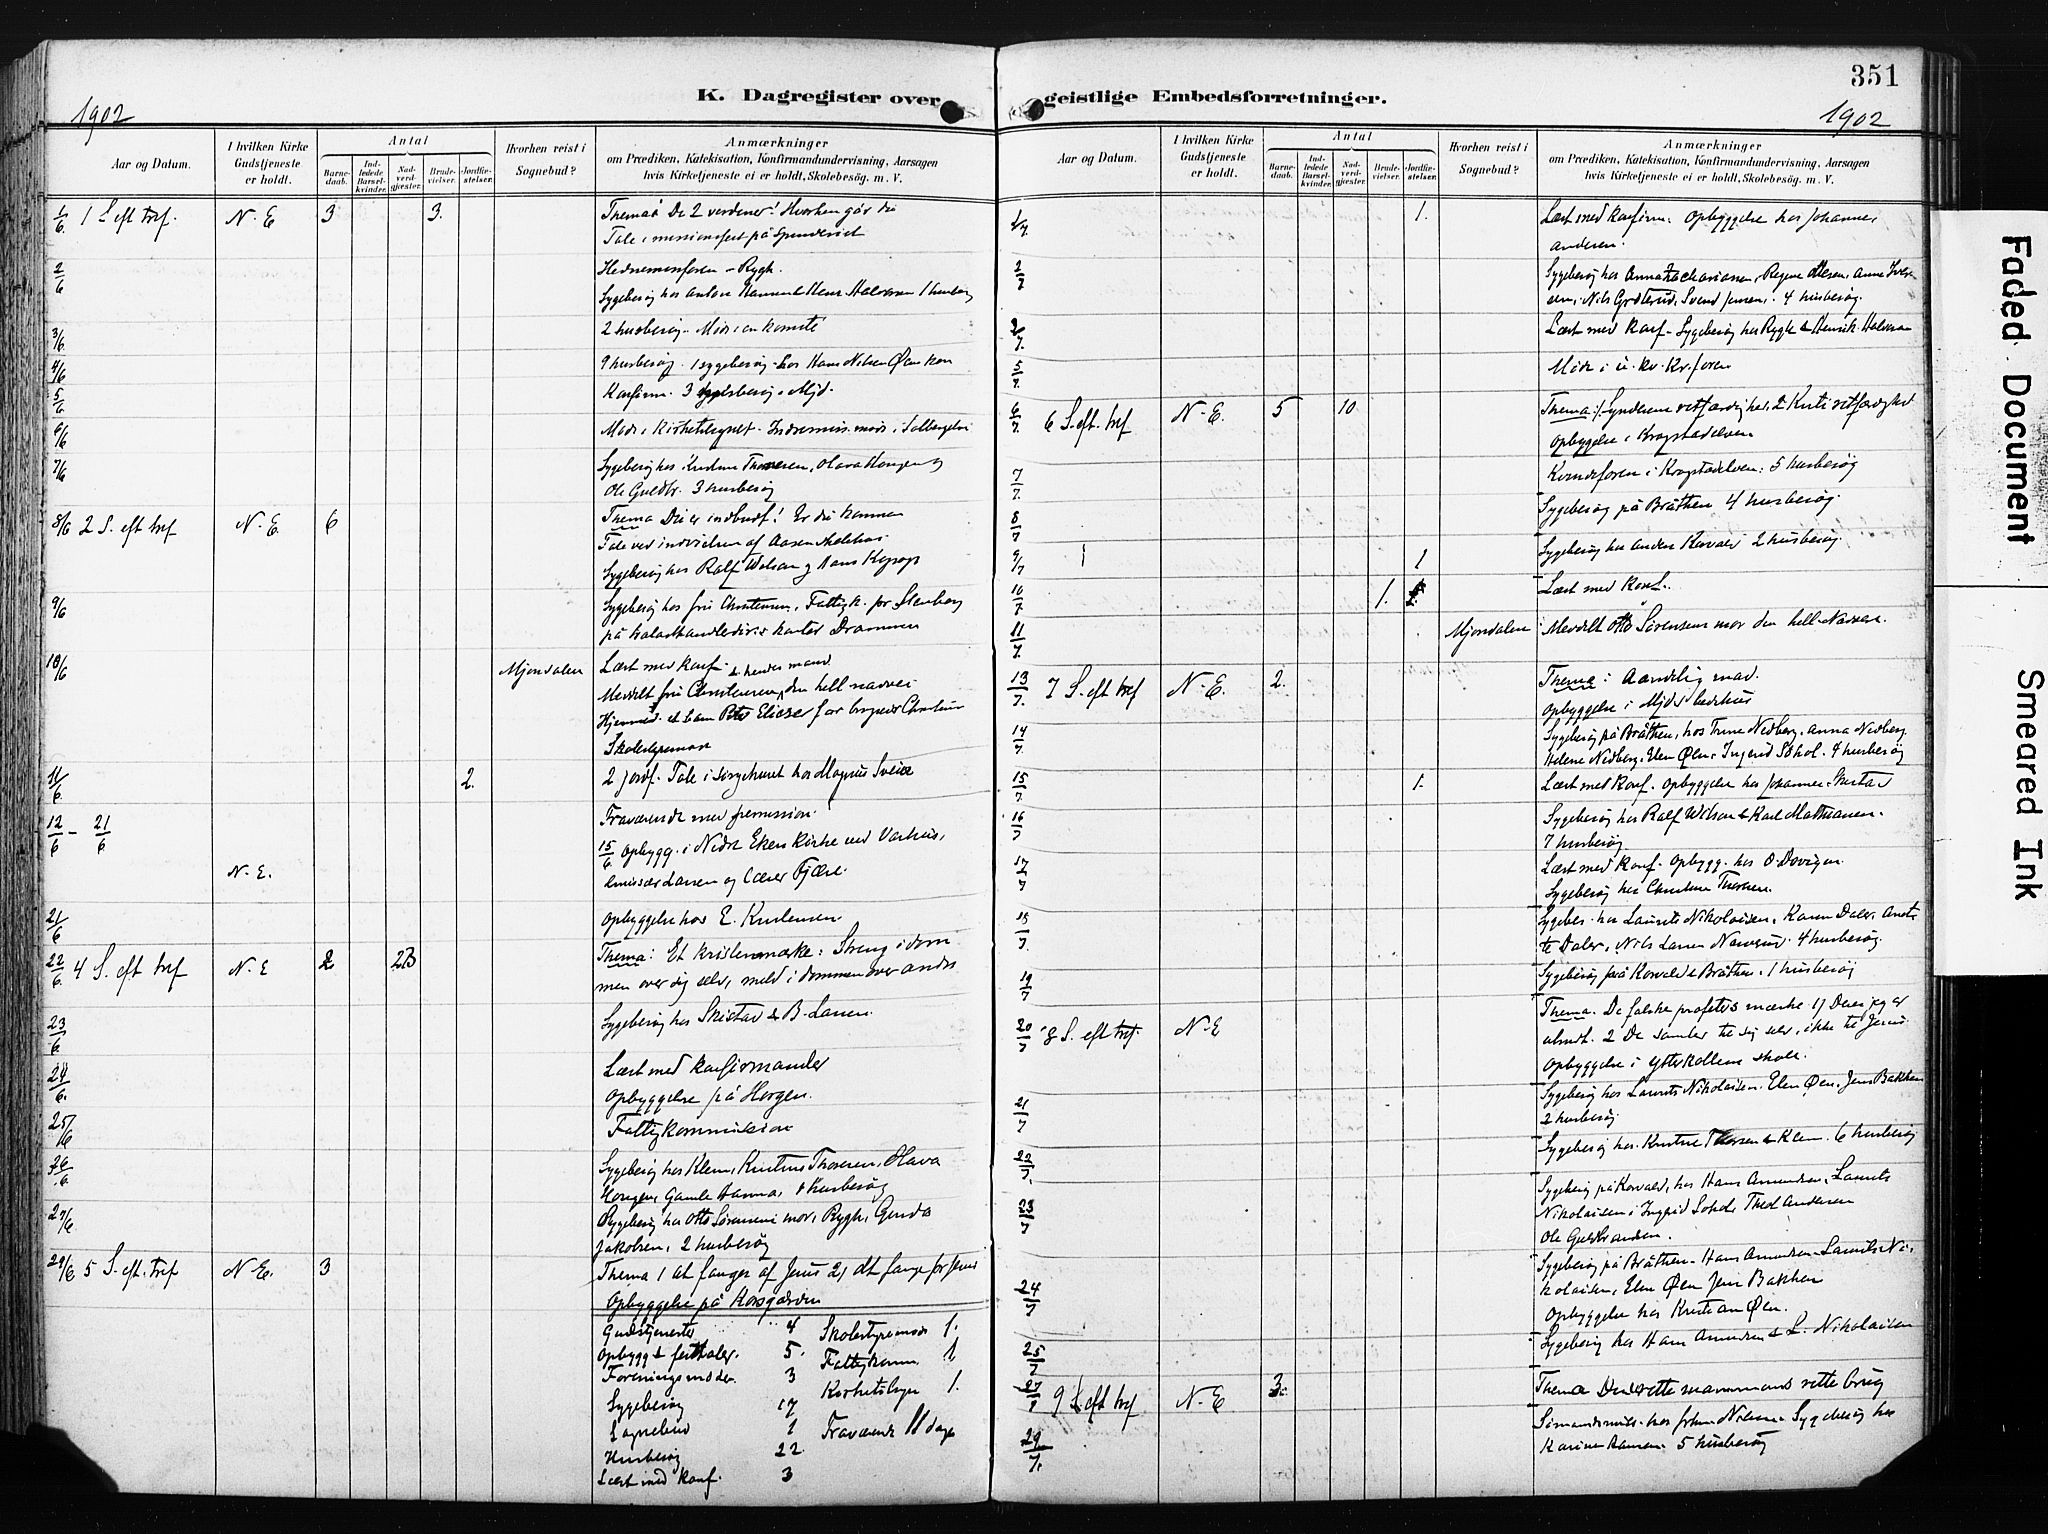 351
K. Dagregister over geistlige Embedsforretninger.
1902
1902
Aar og Datum.
I hvilken Kirke Gudstjeneste er holdt.
Antal
Barnedaab.
Indledede Barselkvinder.
Nadverdgjæster.
Brudevielser.
Jordfæstelser.
Hvorhen reist i Sognebud?
Anmærkninger
om Prædiken, Katekisation, Konfirmandundervisning, Aarsagen
hvis Kirketjeneste ei er holdt, Skolebesøg. m. V.
1/6 1 S. eft tref. N. E 3 3. Thema: De 2 verdener! Hvorhen går du
Tale i missionsfest på
2/6 Hednemisforen - Rygh.
Sygebesøg hos Anton Hansen & Henr Halvorsen 1 husbesøg
3/6 2 husbesøg. Møde i en komité
4/6 9 husbesøg. 1 sygebesøg hos Hans Nilsen Øen
5/6 Konfirm. 3 sygebesøg i Mjd.
6/6 Møde i Kirketilsynet. Indremiss. møde i Solbergelven
7/6 Sygebesøg hos Kristine Thoresen, Olava Horgen og
Ole Guldbr. 3 husbesøg
8/6 2 S. eft tref N. E. 6 Thema Du er indbudt! Er du kommen
Tale ved indvielsen af Aasen
Sygebesøg hos Ralf Wilson og Hans Kopperud
9/6 Sygebesøg hos fru Christensen, Fattigk. for Stenberg
på kontor Drammen
10/6 Mjøndalen Læst med konf. & hendes mand
Meddelt fru Christensen den hell nadver
Hjemmed. et barn Peter Elieser for Christensen
Skolestyremøde
11/6 2. 2 jordf. Tale i sørgehuset hos Magnus Sveive
12/6 - 21/6 Fraværende med permission.
N. E. 15/6 Opbygg. i Nedre Ekers kirke ved Varhus,
emissær Larsen og Lærer Fjære.
21/6 Opbyggelse hos E. Kristensen
22/6 4 S. eft tref N. E 2 23 Thema: Et kristenmærke: Streng i dom
men over sig selv, mild i dommen over andre
23/6 Sygebesøg hos Skistad & B. Larsen.
24/6. Læst med konfirmander
Opbyggelse på Horgen.
25/6 Fattigkommission
26/6 Sygebesøg hos Klem, Kristine Thoresen, Olava
Horgen, Gamle Hanna, husbesøg
27/6 Sygebesøg hos Otto Sørensens mor, Rygh, Gerda
Jakobsen, 2 husbesøg
29/6 5 S. eft. tref N. E. 3 Thema 1 at fanges af Jesus 2) at fange for Jesus
Opbyggelse på Horsgården
Gudstjenester 4 Skolestyremøde 1.
Opbygg & festtaler. 5. Fattigkomm 1
Foreningsmøder. 3 Kirketilsyn 1.
Sygebesøg 17
Sognebud 1 Fraværende 11 dage
Husbesøg 22
Læst med konf. 3
Aar og Datum.
I hvilken Kirke Gudstjeneste er holdt.
Antal
Barnedaab.
Indledede Barselkvinder.
Nadverdgjæster.
Brudevielser.
Jordfæstelser.
Hvorhen reist i Sognebud?
Anmærkninger
om Prædiken, Katekisation, Konfirmandundervisning, Aarsagen
hvis Kirketjeneste ei er holdt, Skolebesøg. m. V.
1/7. 1. Læst med konfirm. Opbyggelse hos Johannes
Andersen.
2/7 Sygebesøg hos Anna Zachariasen, Regine Olsen, Anne Iver
sen, Nils Grøterud, Svend Jensen. 4 husbesøg.
Læst med konf. Sygebesøg hos Rygh & Henrik Halvorsen
5/7. Møde i u. kv. kr. foren
6/7. 6 S. eft. tref N. E. 5 10. Thema: 1. Syndernes retfærdighed, 2 Kristi retfærdighed
Opbyggelse i Krogstadelven
7/7. Kvindeforen i Krogstadelven: 5 husbesøg
8/7 Sygebesøg på Bråthen 4 husbesøg.
9/7 1 Sygebesøg hos Anders Korvald 2 husbesøg.
10/7. 1. Læst med konf.
11/7. Mjøndalen Meddelt Otto Sørensens mor den hell. Nadver.
13/7. 7 S. eft tref N. E. 2. Thema: Aandelig mad.
Opbyggelse i Mjds bedehus
14/7. Sygebesøg på Bråthen, hos Trine Nedberg, Anna Nedberg
Helene Nedberg, Elen Øen, Ingrid Sohol. 4 husbesøg
15/7. 1. Læst med konf. Opbyggelse hos Johannes Skistad
16/7 Sygebesøg hos Ralf Wilson & Karl Mathiasen.
7 husbesøg.
17/7 Læst med konf. Opbygg. hos O. Dovigen.
Sygebesøg hos Christine Thoresen.
18/7. Sygebes. hos Laurits Nikolaisen, Karen Daler, Anet
te Daler, Nils Larsen Narverud. 4 husbesøg.
19/7 Sygebesøg på Korvald & Bråthen, 1 husbesøg
20/7 8 S. eft tref. N. E Thema. De falske profeters mærke 1) Deres jeg er
alindt. 2 De samler til sig selv, ikke til Jesus.
Opbyggelse i Ytterkollens skole.
21/7 Sygebesøg hos Laurits Nikolaisen. Elen Øen, Jens Bakken
2 husbesøg.
22/7. Sygebesøg hos Kristine Thoresen & Klem. 6 husbesøg
23/7 Sygebesøg på Korvald, hos Hans Amundsen, Laurits
Nikolaisen, Ingrid Sohol, Theod Andersen
Ole Guldbrandsen.
24/7 Sygebesøg på Bråthen - Hans Amundsen - Laurits Ni
kolaisen, Elen Øen Jens Bakken
Opbyggelse hos Kristian Øen.
25/7 Sygebesøg hos Hans Amundsen & L. Nikolaisen
27/7 9 S. eft tref N. E 3. Thema Den rette mammons rette brug
29/7. Sømandsmiss. hos Nilsen. Sygebesøg hos
Karine Hansen. 5 husbesøg
Faded Document
Smeared Ink